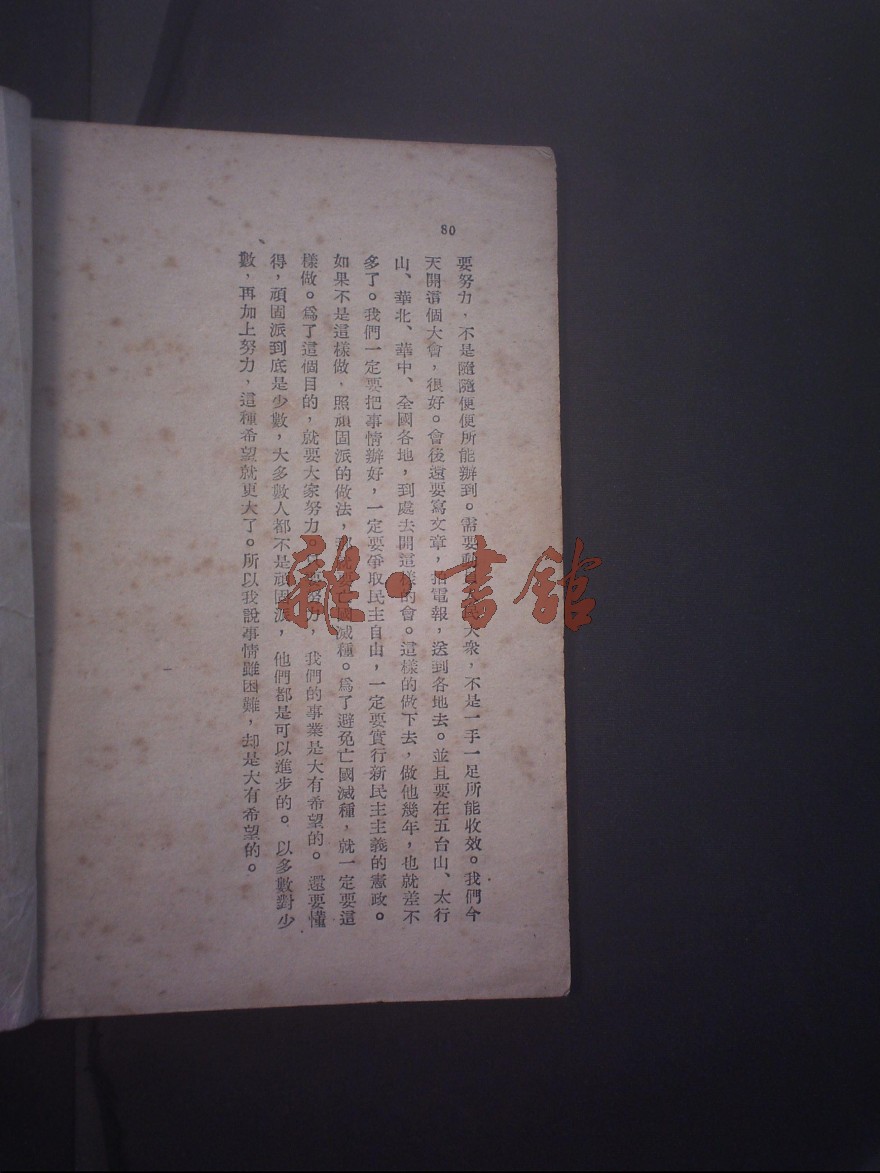 80
要努力，不是隨隨便便所能辦到。需要動員人民大衆，不是一手一足所能收效。我們今
天開這個大會，很好。會後還要寫文章，拍電報，送到各地去。並且要在五台山、太行
山、華北、華中、全國各地，到處去開這樣的會。這樣的做下去，做他幾年，也就差不
多了。我們一定要把事情辦好，一定要爭取民主自由，一定要實行新民主主義的憲政。
如果不是這樣做，照頑固派的做法，亡國滅種。爲了避免亡國滅種，就一定要這
樣做。爲了這個目的，就要大家努力。努力，我們的事業是大有希望的。還要懂
得，頑固派到底是少數，大多數人都不是頑固派，他們都是可以進步的。以多數對少
數，再加上努力，這種希望就更大了。所以我說事情雖困難，却是大有希望的。
雜·書館